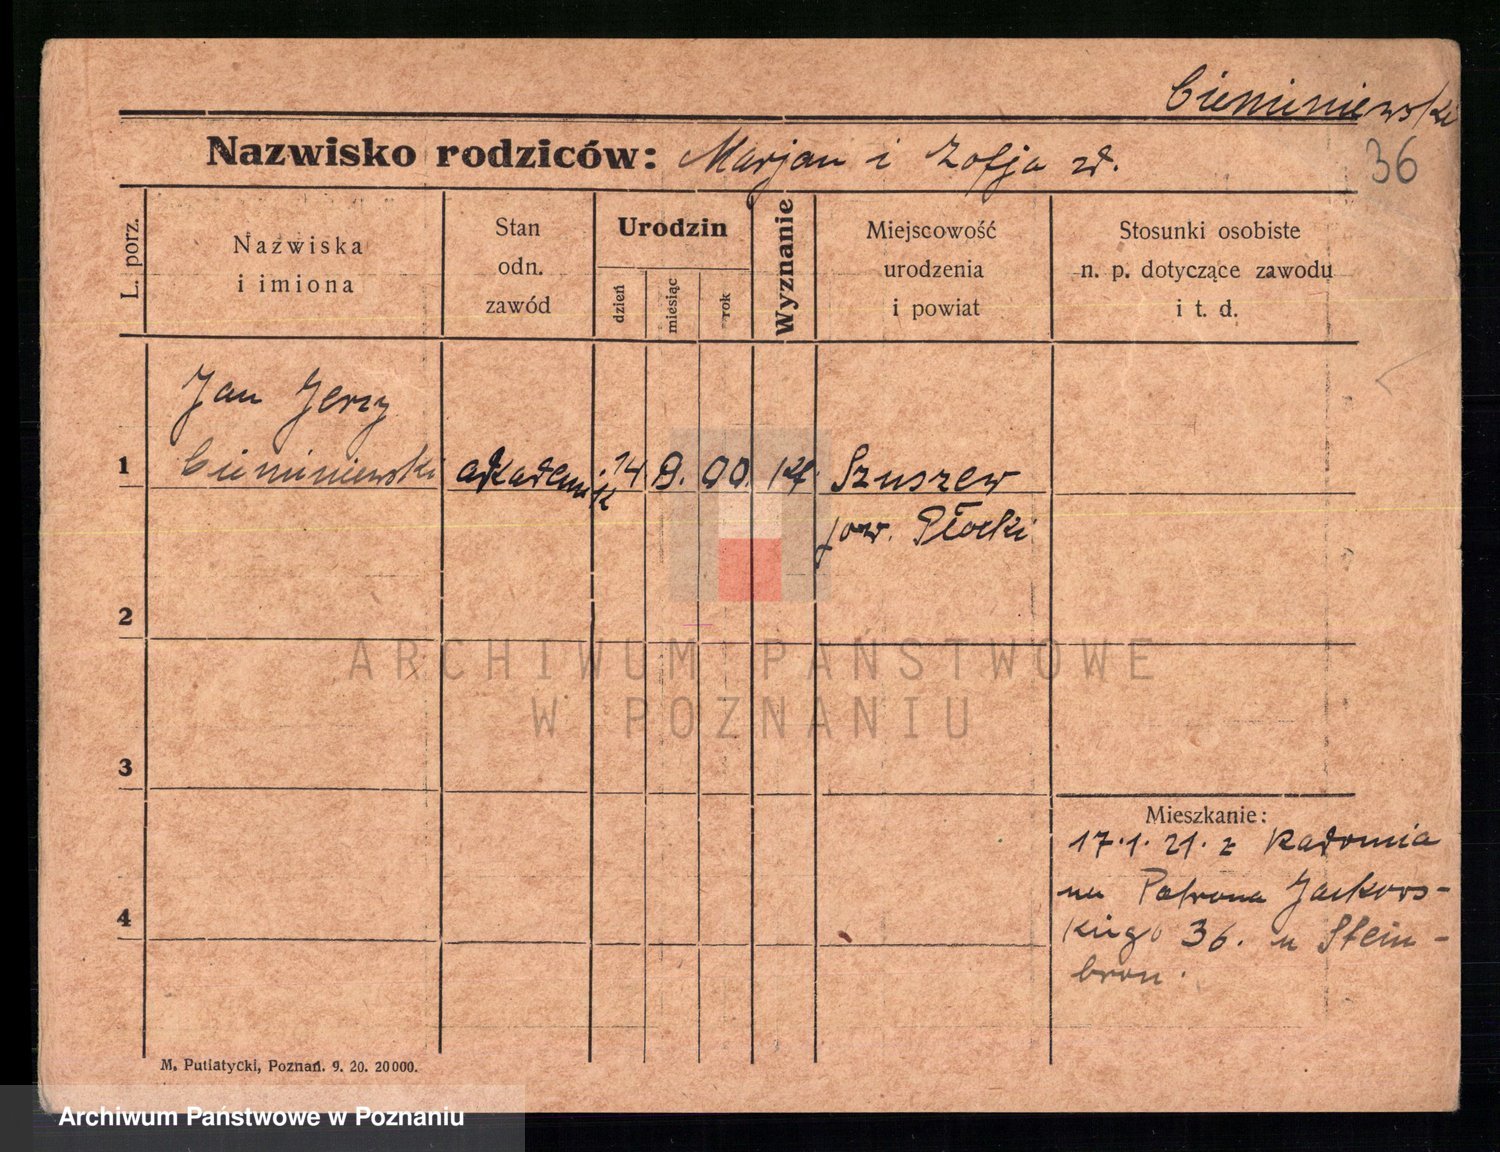 Cieminiewski
Nazwisko rodziców: Marjan i Zofja zd.
36
L. porz.
Nazwiska
i imiona
Stan
odn.
zawód
Urodzin
dzień
miesiąc
rok
Wyznanie
Miejscowość
urodzenia
i powiat
Stosunki osobiste
n. p. dotyczące zawodu
i t. d.
Jan Jerzy
1 Cieminiewski akademik 14 9. 00. kat. Szuszew
pow. Płocki
2
3
4
Mieszkanie:
17.1.21. z Radomia
na Patrona Jackows-
kiego 36. u Stein-
bron.
M. Putiatycki, Poznań. 9. 20. 20000.
ARCHIWUM PAŃSTWOWE
W POZNANIU
Archiwum Państwowe w Poznaniu